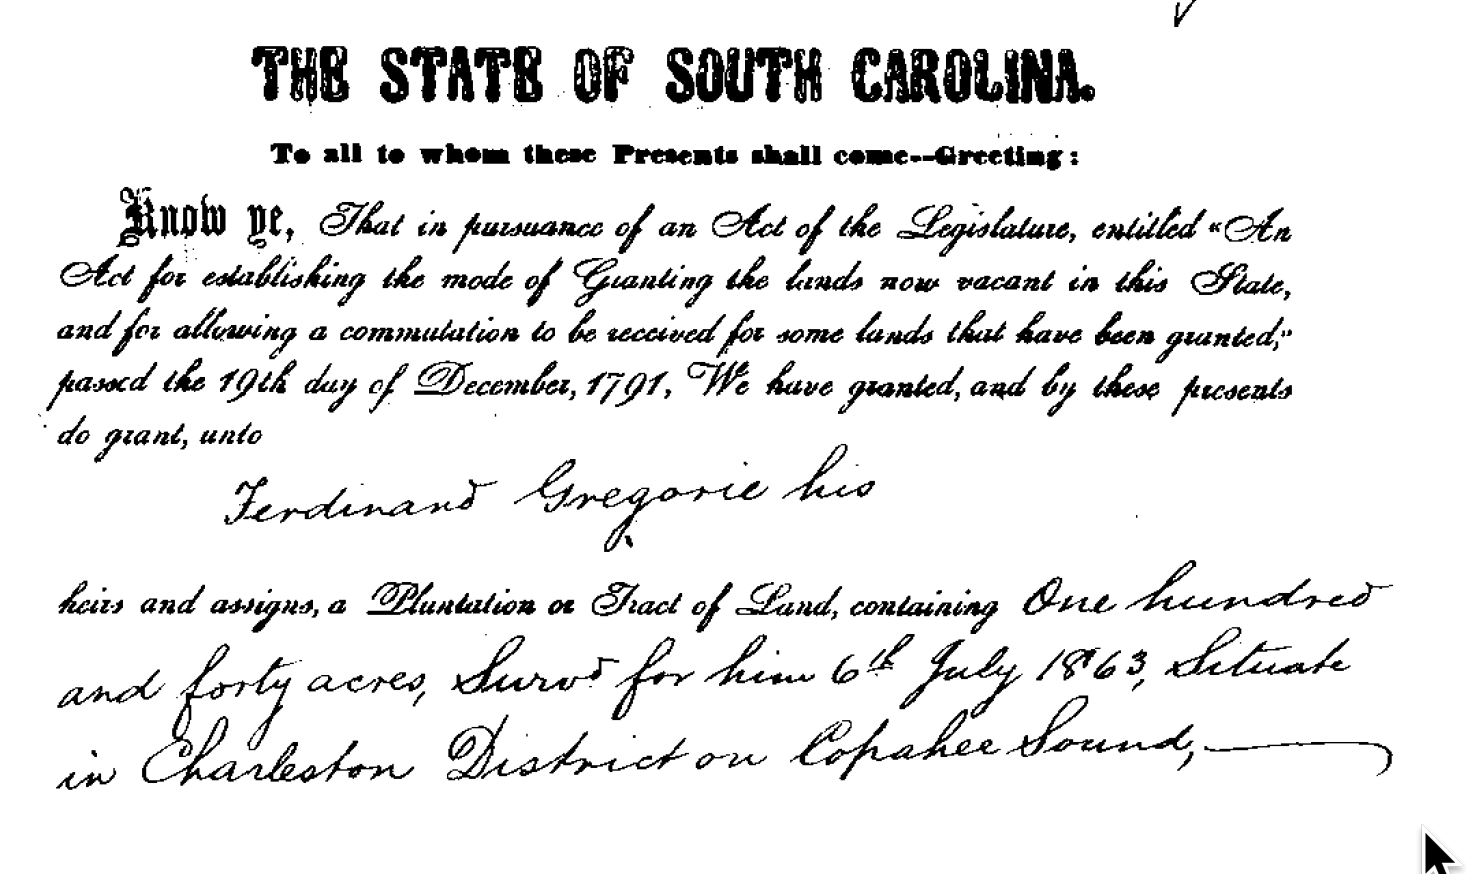 THE STATE OF SOUTH CAROLINA.
To all to whom these Presents shall come--Greeting:
Know ye, That in pursuance of an Act of the Legislature, entitled "An
Act for establishing the mode of Granting the lands now vacant in this State,
and for allowing a commutation to be received for some lands that have been granted,"
passed the 19th day of December, 1791, We have granted, and by these presents
do grant, unto
Ferdinand Gregorie his
heirs and assigns, a Plantation or Tract of Land, containing One hundred
and forty acres, Survd for him 6th July 1863, Situate
in Charleston District on Copahee Sound,